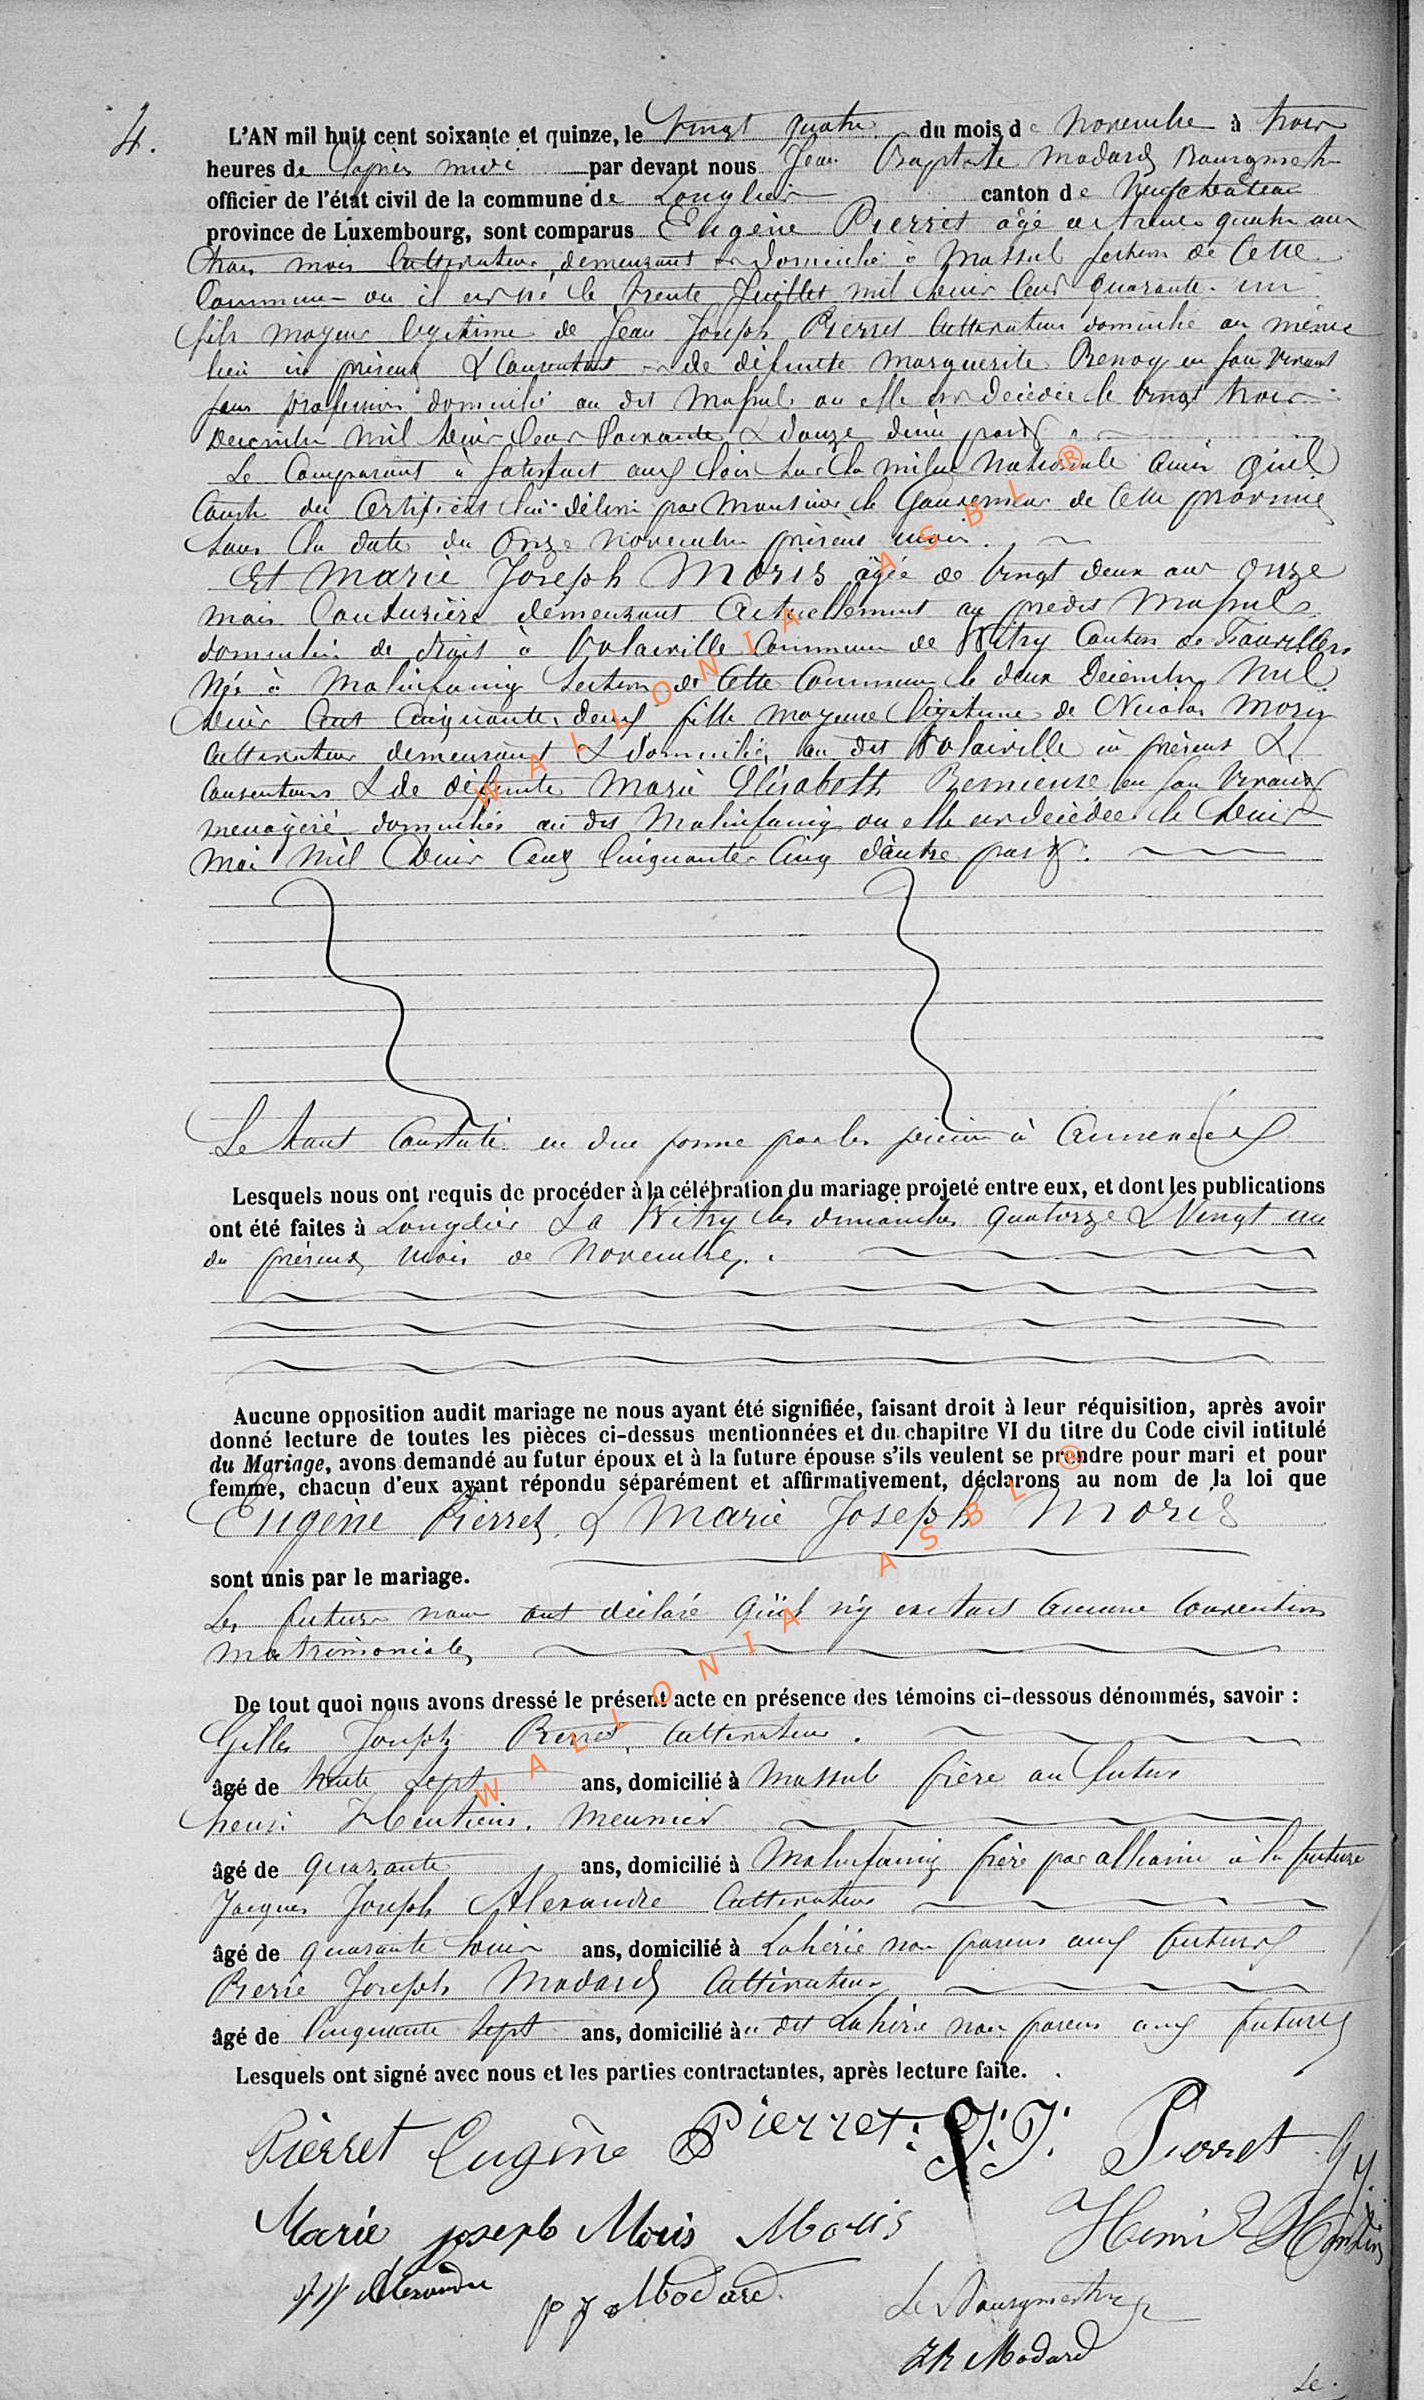 4.
L'AN mil huit cent soixante et quinze, le Vingt quatre du mois de Novembre à trois
heures de l'après midi par devant nous Jean Baptiste Modard Bourgmestre
officier de l'état civil de la commune de Longlier canton de Neufchateau
province de Luxembourg, sont comparus Eugène Pierret âgé de trente quatre ans
trois mois Cultivateur, demeurant & domicilié à Massul section de Cette
Commune où il est né le trente Juillet mil huit Cent quarante un
fils majeur legitime de Jean Joseph Pierret Cultivateur domicilié au même
lieu ici présent & Consentant & de défunte Marguerite Benoy en son vivant
sans profession domiciliée au dit Massul où elle est décédée le vingt trois
Décembre mil huit Cent Soixante & douze d'une part.
Le Comparant à satisfait aux lois sur la milice Nationale ainsi qu'il
Conste du Certificat lui délivré par Monsieur le Gouverneur de Cette province
sous la date du Onze Novembre présent mois.
Et Marie Joseph Moris âgée de Vingt deux ans onze
mois Couturière demeurant Actuellement au predit Massul
domiciliée de droit à Volaiville Commune de Witry Canton de Fauvillers
Née à Molinfaing section de Cette Commune le deux Décembre Mil
huit Cent Cinquante deux fille majeure légitime de Nicolas Moris
Cultivateur demeurant & domicilié au dit Volaiville ici présent &
Consentant & de défunte Marie Elisabeth en son vivant
menagère domiciliée au dit Molinfaing où elle est décédée le huit
Mai Mil huit Cent Cinquante Cinq d'autre part.
Le tout Constaté en due forme par les pièces à Annexées
Lesquels nous ont requis de procéder à la célébration du mariage projeté entre eux, et dont les publications
ont été faites à Longlier & à Witry les dimanches quatorze & Vingt un
du présent mois de Novembre.
Aucune opposition audit mariage ne nous ayant été signifiée, faisant droit à leur réquisition, après avoir
donné lecture de toutes les pièces ci-dessus mentionnées et du chapitre VI du titre du Code civil intitulé
du Mariage, avons demandé au futur époux et à la future épouse s'ils veulent se prendre pour mari et pour
femme, chacun d'eux ayant répondu séparément et affirmativement, déclarons au nom de la loi que
Eugène Pierret & Marie Joseph Moris
sont unis par le mariage.
Les futurs nous ont déclaré qu'il n'y existait Aucune Convention
matrimoniale
De tout quoi nous avons dressé le présent acte en présence des témoins ci-dessous dénommés, savoir :
Gilles Joseph Pierret, Cultivateur.
âgé de trente sept ans, domicilié à Massul frère au futur
henri meunier
âgé de quarante ans, domicilié à Molinfaing frère par alliance à la future
Jacques Joseph Alexandre Cultivateur
âgé de quarante huit ans, domicilié à Lahérie non parent aux futurs
Pierre Joseph Modard Cultivateur
âgé de Cinquante Sept ans, domicilié au dit Lahérie non parent aux futurs
Lesquels ont signé avec nous et les parties contractantes, après lecture faite.
Pierret Eugène Pierret: J:J: Pierret G J.
Marie joseph Moris Moris Henri
J J Alexandre p J Modard. Le Bourgmestre
JB Modard
Le.
WALLONIA ASBL ®
WALLONIA ASBL ®